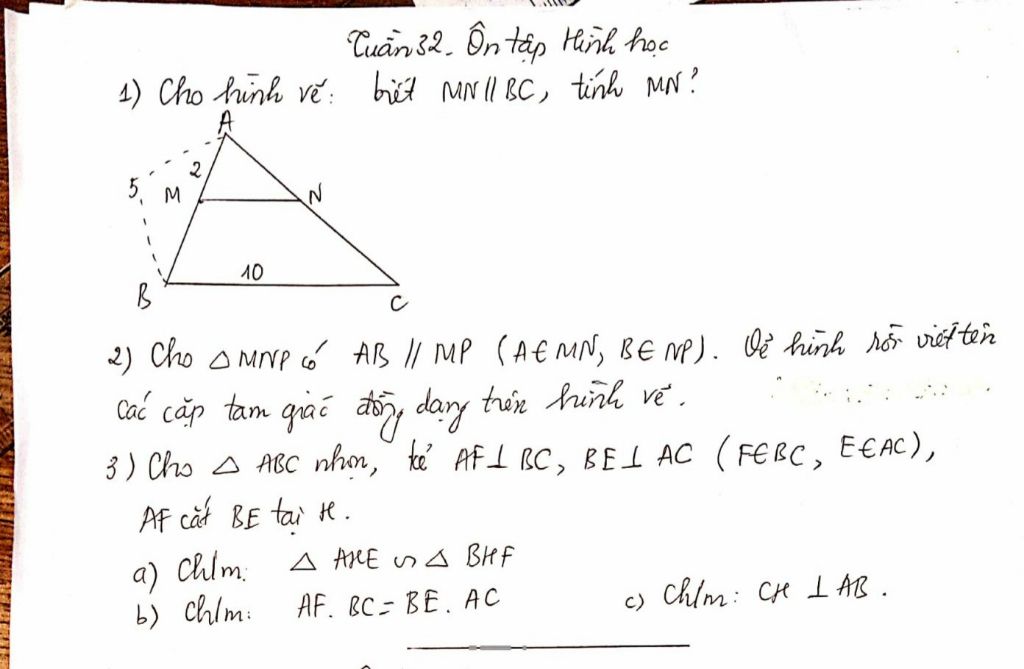 Tuần 32. Ôn tập Hình học
1) Cho hình vẽ: biết MN // BC, tính MN?
A
2
5
M
N
10
B
C
2) Cho △ MNP có AB // MP (A∈MN, B∈NP). Vẽ hình rồi viết tên
các cặp tam giác đồng dạng trên hình vẽ.
3) Cho △ ABC nhọn, kẻ AF⊥BC, BE⊥AC (F∈BC, E∈AC),
AF cắt BE tại H.
a) Ch/m: △ AHE ∽ △ BHF
b) Ch/m: AF. BC = BE. AC c) Ch/m: CH ⊥ AB.